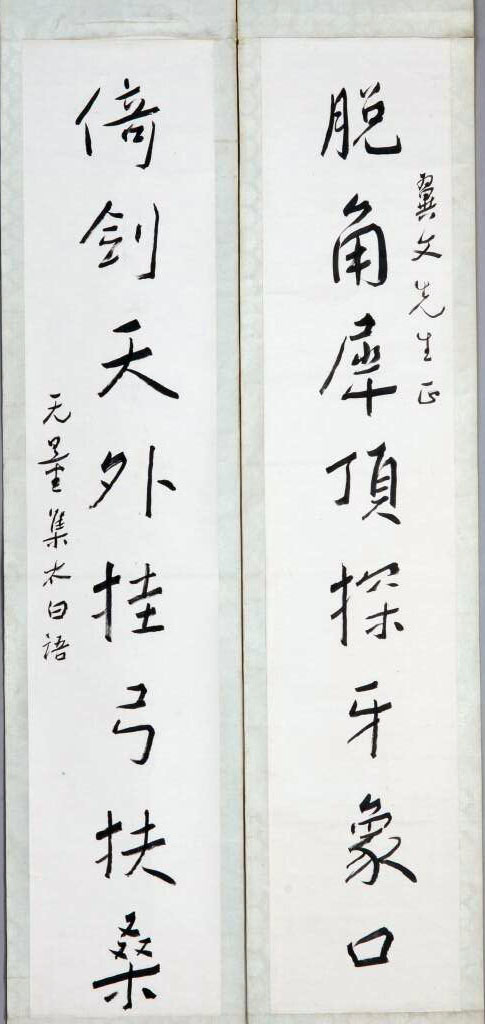 脱角犀顶探牙象口
翼文先生正
倚剑天外挂弓扶桑
无量集太白语